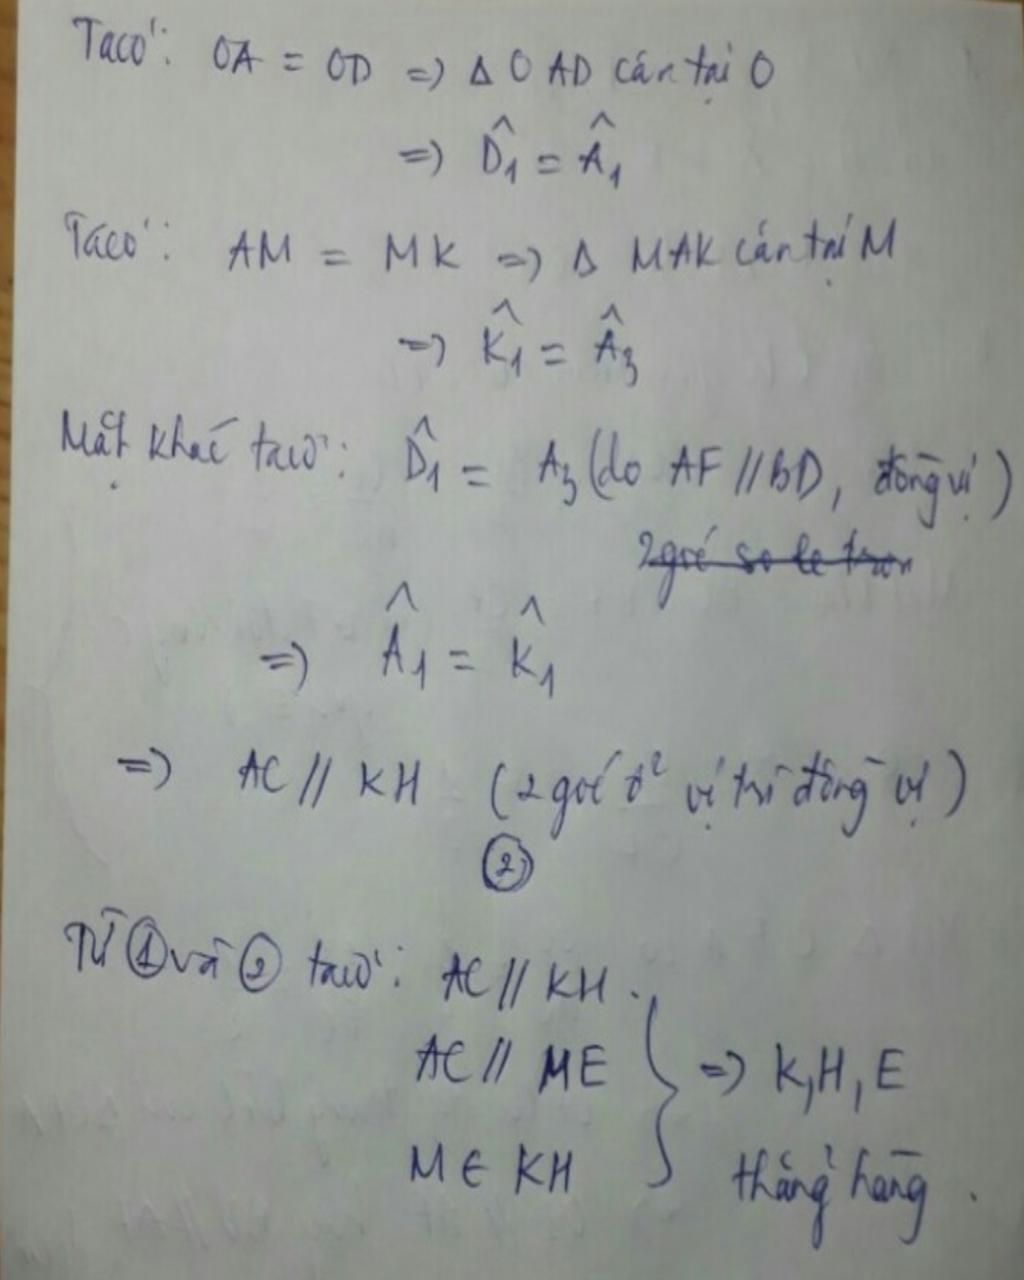 Ta có: OA = OD => Δ OAD cân tại O
=> D̂₁ = Â₁
Ta có: AM = MK => Δ MAK cân tại M
=> K̂₁ = Â₃
Mặt khác ta có: D̂₁ = A₃ (do AF // BD, đồng vị)
2 góc so le tron
=> Â₁ = K̂₁
=> AC // KH (2 góc ở vị trí đồng vị)
②
Từ ① và ② ta có: AC // KH.
AC // ME => K, H, E
M ∈ KH thẳng hàng.